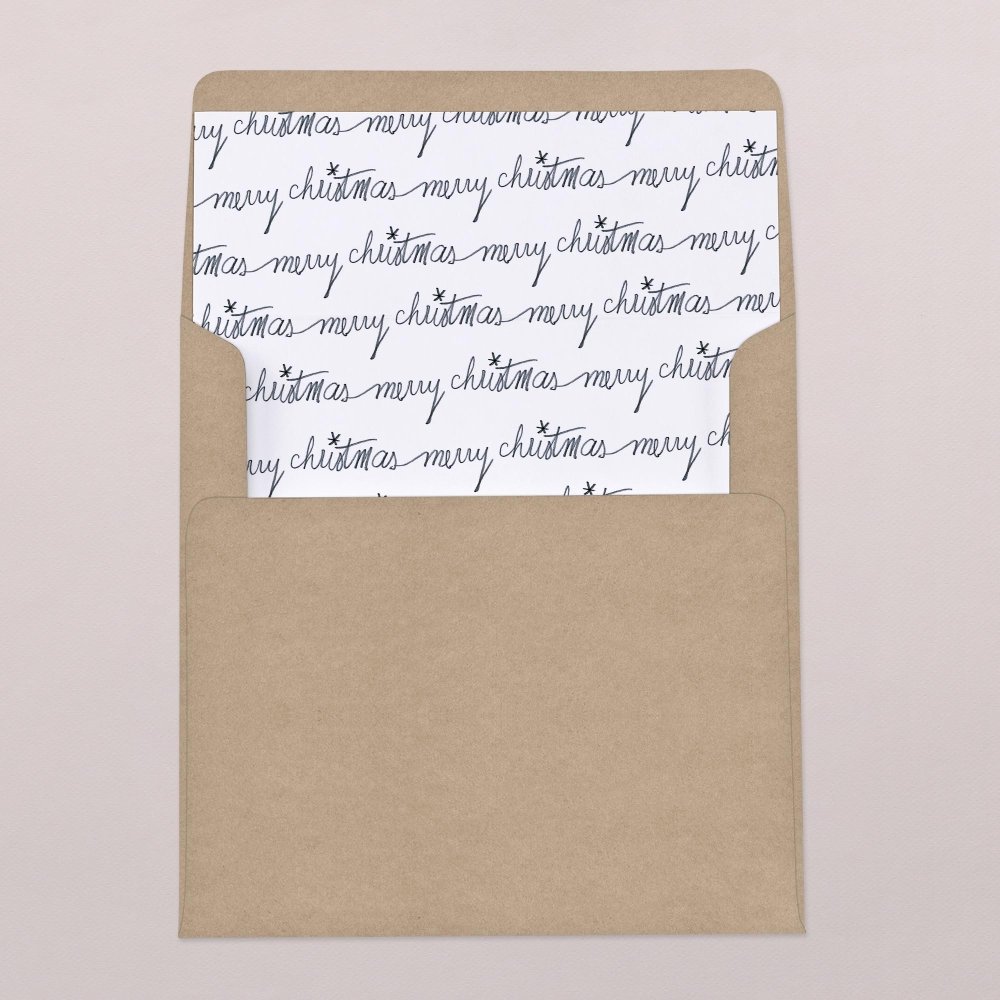 ry christmas merry christmas merry
merry christmas merry christmas merry christm
tmas merry christmas merry christmas merry c
christmas merry christmas merry christmas mer
christmas merry christmas merry christm
rry christmas merry christmas merry ch